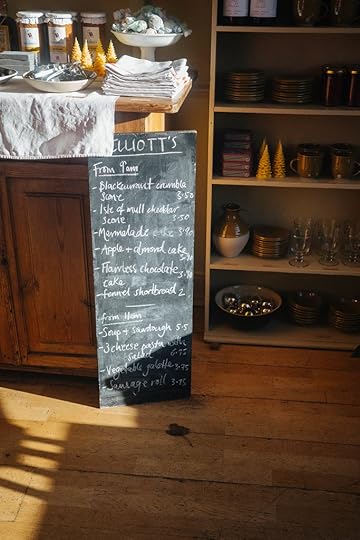 ELLIOTT'S
From 9am
- Blackcurrant crumble
scone 3.50
- Isle of mull cheddar
scone 3.50
- Marmalade cake 3.80
- Apple + almond cake
3.80
- Flourless chocolate
cake 3.90
- fennel shortbread 2
from 11am
- Soup + Sourdough 5.5
- 3 cheese pasta with
salad 6.75
- Vegetable galette 3.75
- Sausage roll 3.95